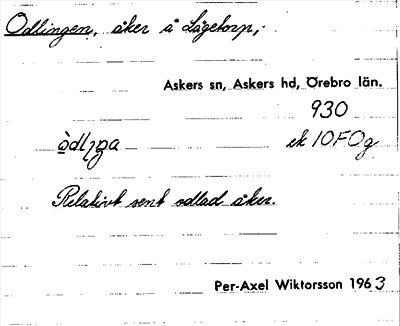 Odlingen, åker å Lågetorp,
Askers sn, Askers hd, Örebro län.
930
òdlıŋa ek 10F0g
Relativt sent odlad åker.
Per-Axel Wiktorsson 1963